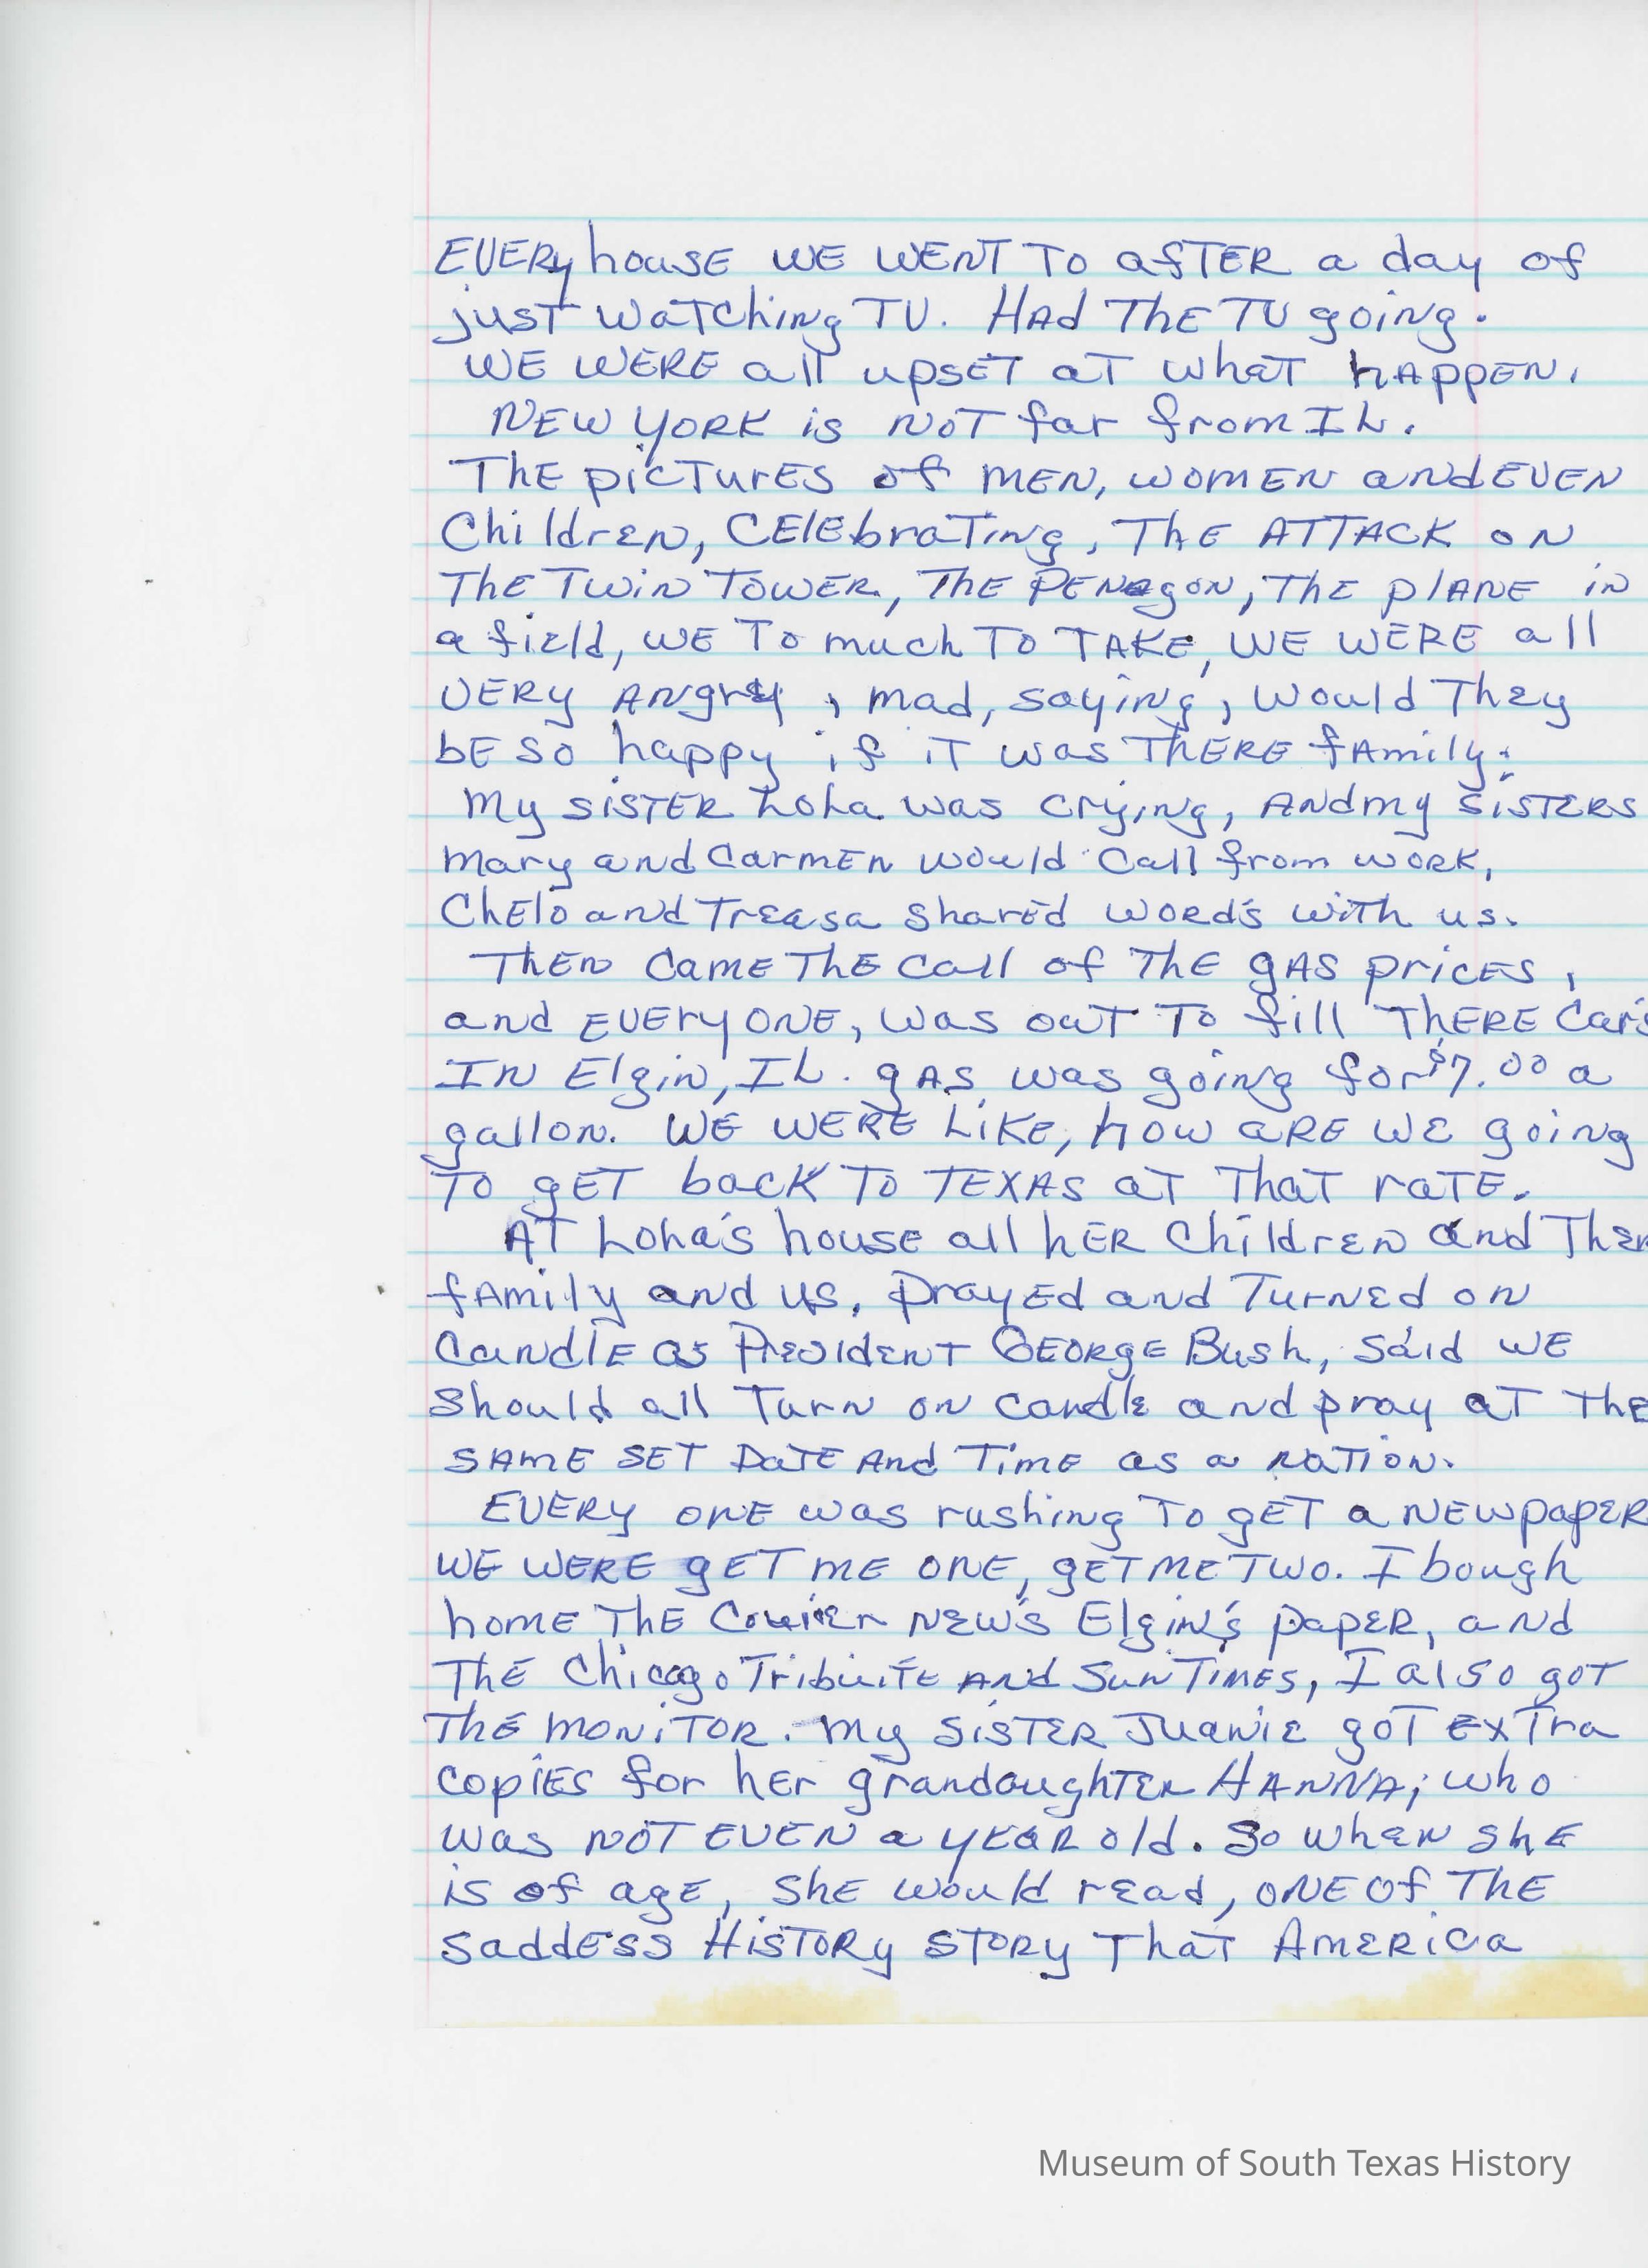 Every house we went to after a day of
just watching TV. Had the TV going.
We were all upset at what happen.
New York is not far from IL.
The pictures of men, women and even
Children, celebrating, the attack on
the Twin Tower, the Penagon, the plane in
a field, we to much to take, we were all
very angry, mad, saying, would they
be so happy if it was there family.
My sister Lola was crying, and my sisters
Mary and Carmen would call from work,
Chelo and Treasa shared word's with us.
Then came the call of the gas prices,
and everyone, was out to fill there car's
In Elgin, IL. gas was going for $7.00 a
gallon. We were like, how are we going
to get back to Texas at that rate.
At Lola's house all her children and their
family and us, prayed and turned on
candle as President George Bush, said we
should all turn on candle and pray at the
same set date and time as a nation.
Every one was rushing to get a newpaper
we were get me one, get me two. I bough
home the Courier New's Elgin's paper, and
the Chicago Tribuite and Sun Times, I also got
the Monitor. My sister Juanie got extra
copies for her grandaughter Hanna; who
was not even a year old. So when she
is of age, she would read, one of the
saddess History story that America
Museum of South Texas History